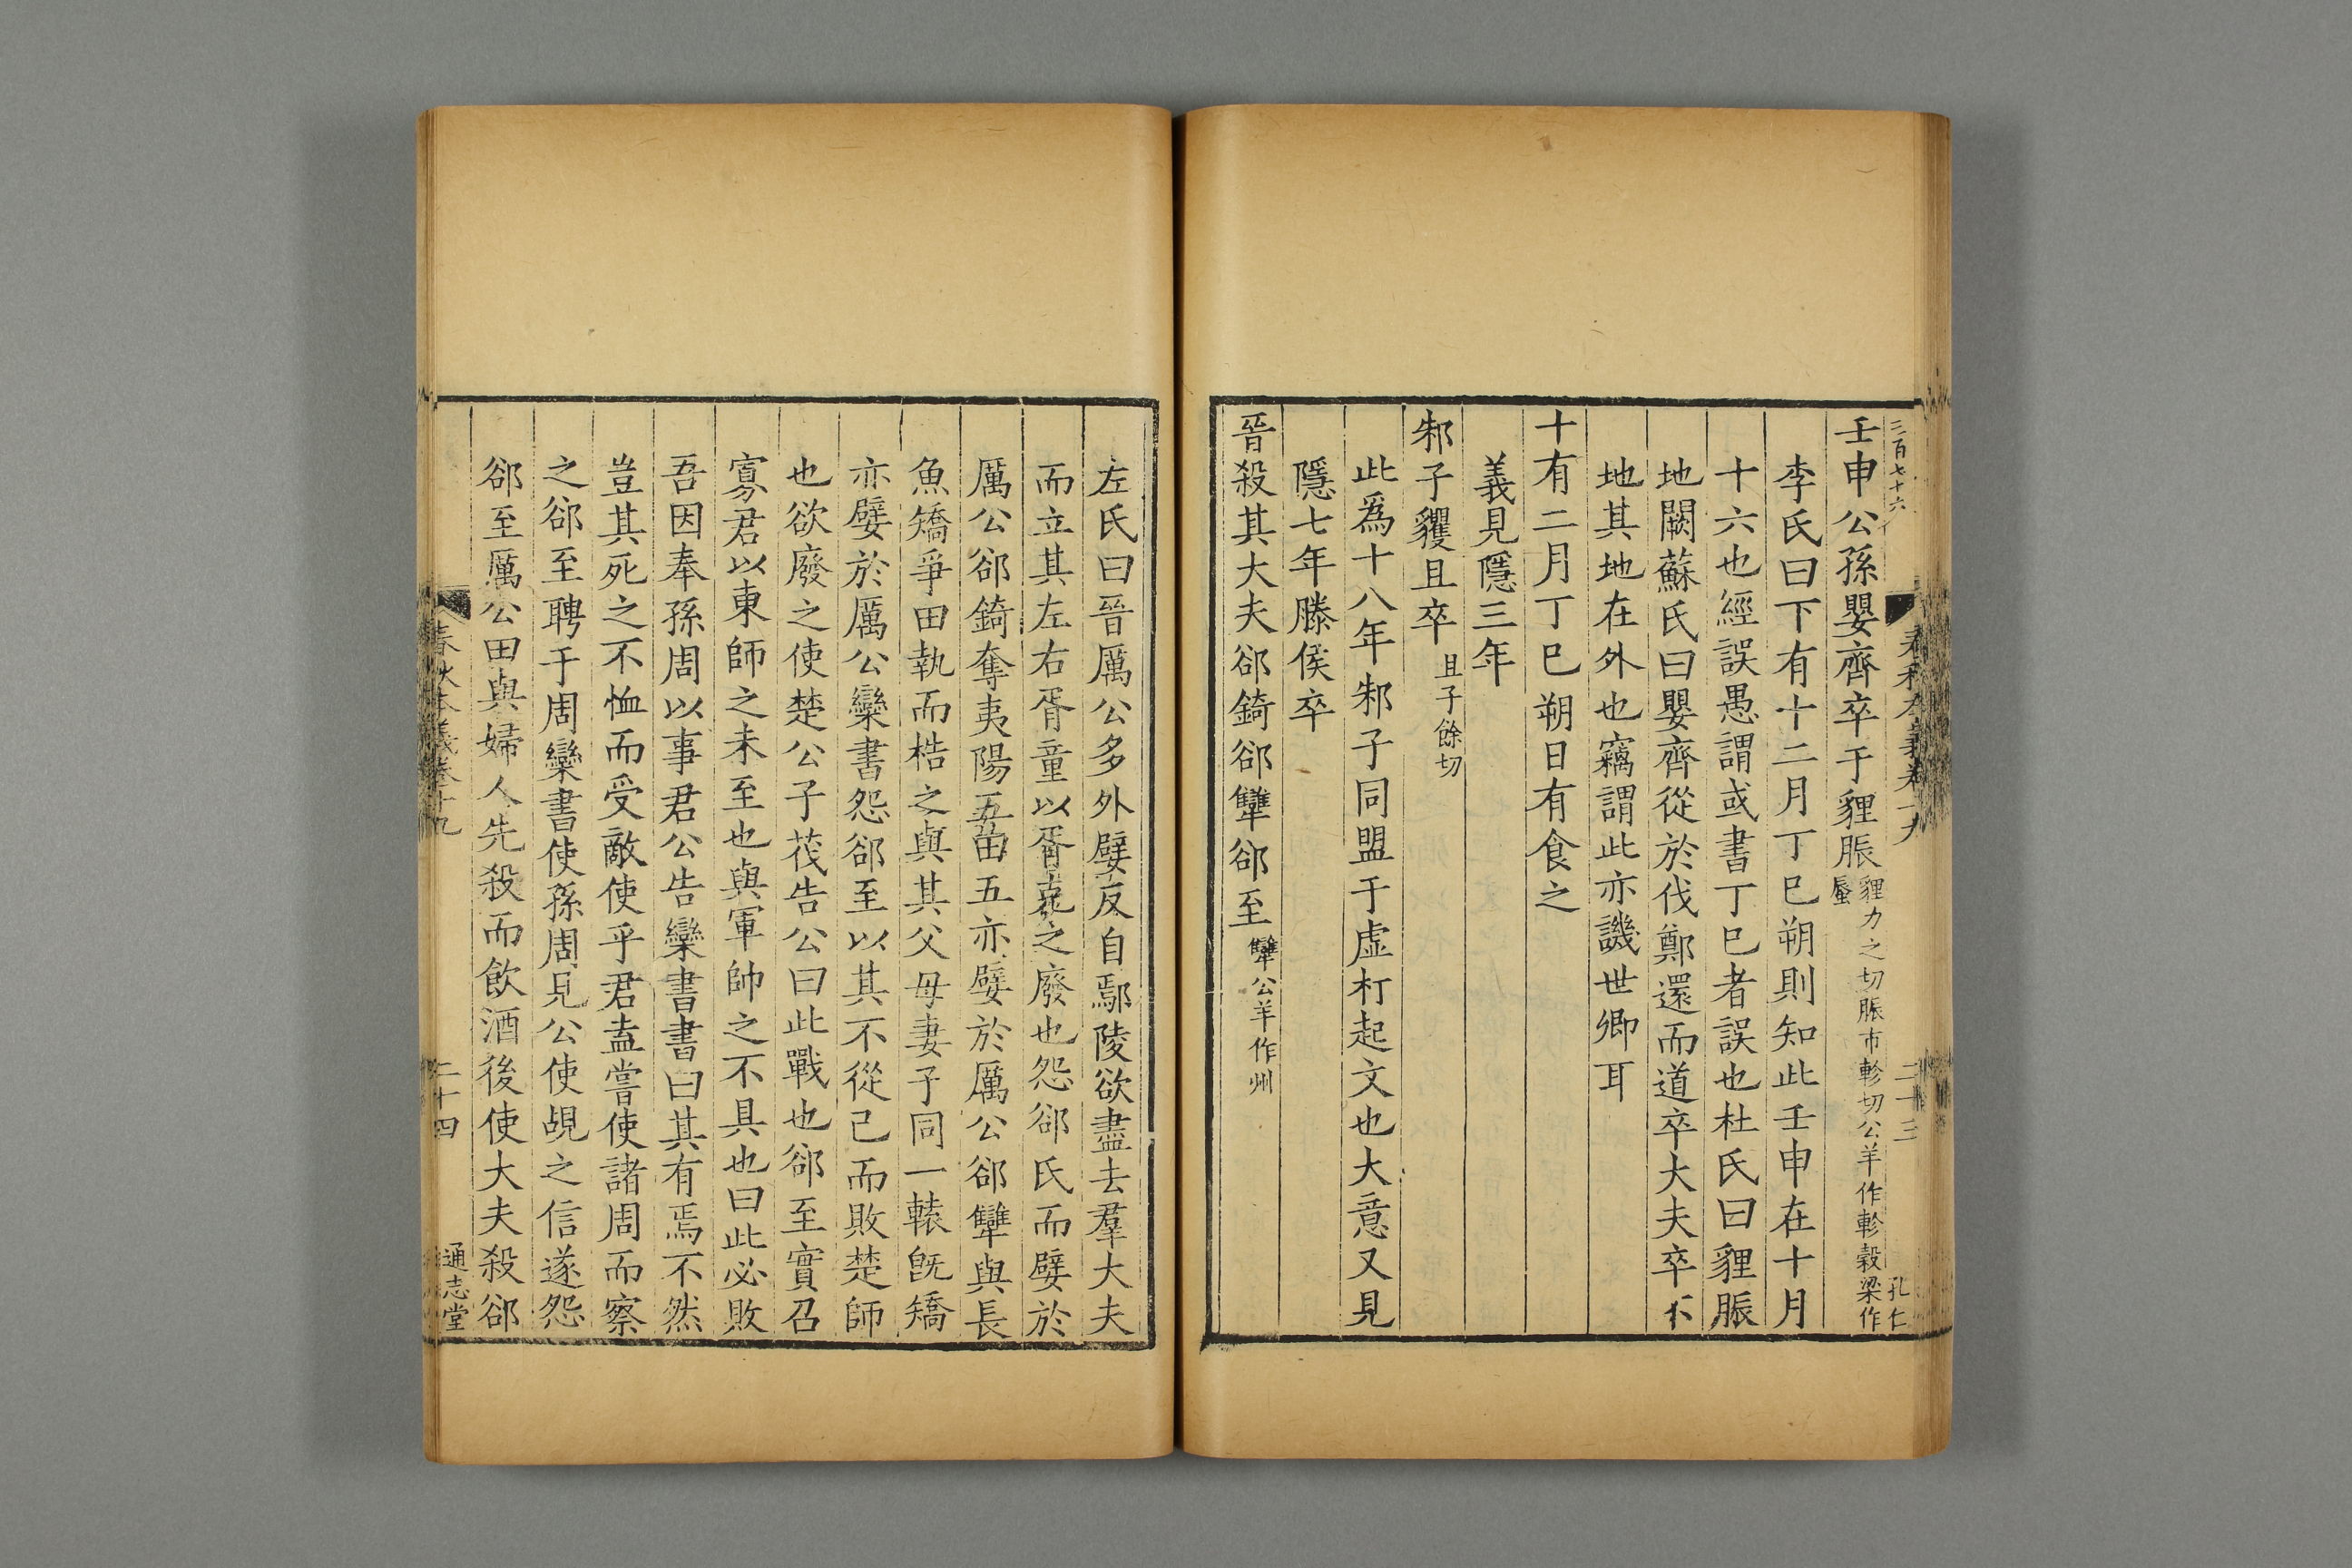 三百七十六
春秋本義卷十九
二十三
孔仁
壬申公孫嬰齊卒于貍脤貍力之切脤市軫切公羊作軫穀梁作蜃
李氏曰下有十二月丁巳朔則知此壬申在十月
十六也經誤愚謂或書丁巳者誤也杜氏曰貍脤
地闕蘇氏曰嬰齊從於伐鄭還而道卒大夫卒不
地其地在外也竊謂此亦譏世卿耳
十有二月丁巳朔日有食之
義見隱三年
邾子貜且卒且子餘切
此爲十八年邾子同盟于虛朾起文也大意又見
隱七年滕侯卒
晉殺其大夫郤錡郤犨郤至犨公羊作州
左氏曰晉厲公多外嬖反自鄢陵欲盡去羣大夫
而立其左右胥童以胥克之廢也怨郤氏而嬖於
厲公郤錡奪夷陽五田五亦嬖於厲公郤犨與長
魚矯爭田執而梏之與其父母妻子同一轅旣矯
亦嬖於厲公欒書怨郤至以其不從己而敗楚師
也欲廢之使楚公子茷告公曰此戰也郤至實召
寡君以東師之未至也與軍帥之不具也曰此必敗
吾因奉孫周以事君公告欒書書曰其有焉不然
豈其死之不恤而受敵使乎君盍嘗使諸周而察
之郤至聘于周欒書使孫周見公使覘之信遂怨
郤至厲公田與婦人先殺而飲酒後使大夫殺郤
春秋本義卷十九
二十四
通志堂